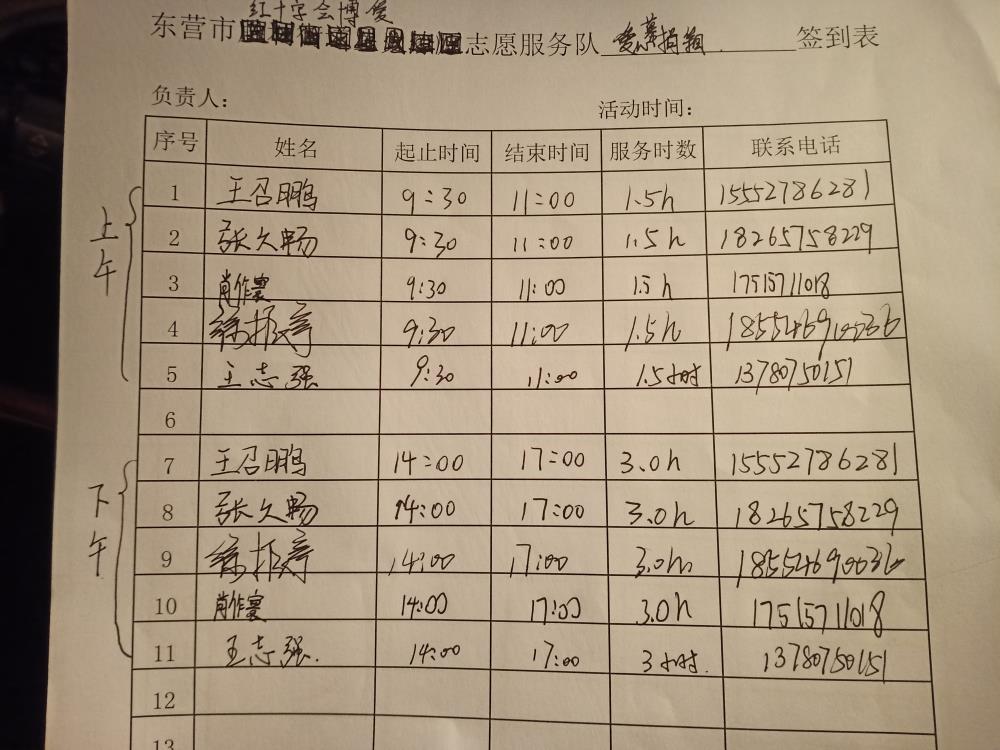 红十字会博爱
东营市 志愿服务队 签到表
负责人： 活动时间：
序号 姓名 起止时间 结束时间 服务时数 联系电话
上午
1 王召鹏 9:30 11:00 1.5h 15552786281
2 张久畅 9:30 11:00 1.5h 18265758229
3 肖作寰 9:30 11:00 1.5h 17515711018
4 9:30 11:00 1.5h
5 王志强 9:30 11:00 1.5小时 13780750151
6
下午
7 王召鹏 14:00 17:00 3.0h 15552786281
8 张久畅 14:00 17:00 3.0h 18265758229
9 14:00 17:00 3.0h 18554690036
10 肖作寰 14:00 17:00 3.0h 17515711018
11 王志强. 14:00 17:00 3小时. 13780750151
12
13